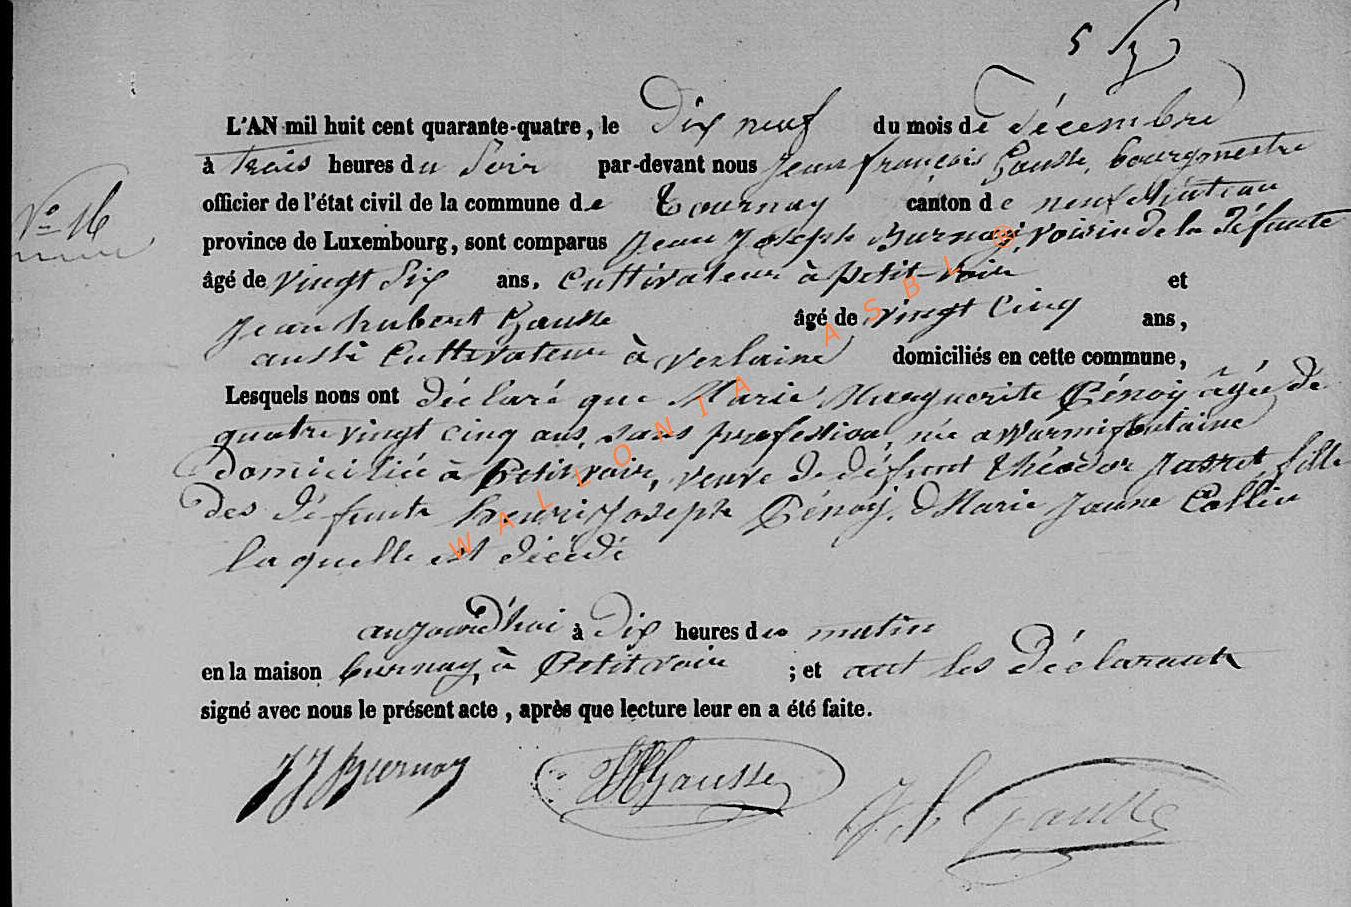 5
L'AN mil huit cent quarante-quatre, le Dix neuf du mois de décembre
à trois heures du Soir par-devant nous Jean françois Gausse, bourgmestre
N° 16
officier de l'état civil de la commune de Tournay canton de neufchateau
province de Luxembourg, sont comparus Jean Joseph Burnay voisin de la défunte
âgé de vingt Six ans, Cultivateur à petit-voir et
Jean hubert Gausse âgé de vingt Cinq ans,
aussi Cultivateur à verlaine domiciliés en cette commune,
Lesquels nous ont déclaré que Marie Marguerite Génoy âgée de
quatre vingt cinq ans, sans profession, née a Warmifontaine
domiciliée à Petitvoir, veuve de défunt théodor Jasret, fille
des défunts henri Joseph Génoy, & Marie Jeanne Collin
laquelle est décédé
aujourd'hui à Dix heures du matin
en la maison burnay, à Petitvoir ; et ont les Déclarants
signé avec nous le présent acte, après que lecture leur en a été faite.
JJ Burnay JH Gausse J f Gausse
WALLONIA ASBL ®